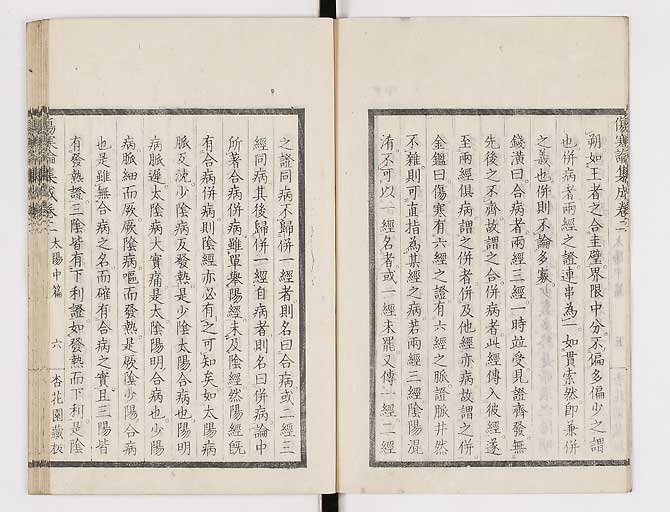 傷寒論集成卷之二
朔如王者之合圭璧界限中分不偏多偏少之謂
也併病者兩經之證連串為一如貫索然即兼併
之義也併則不論多寡
錢潢曰合病者兩經三經一時並受見證齊發無
先後之不齊故謂之合併病者此經傳入彼經遂
至兩經俱病謂之併者併及他經亦病故謂之併
金鑑曰傷寒有六經之證有六經之脈證脈井然
不雜則可直指為某經之病若兩經三經陰陽混
淆不可以一經名者或一經未罷又傳一經二經
之證同病不歸併一經者則名曰合病或二經三
經同病其後歸併一經自病者則名曰併病論中
所著合病併病雖單舉陽經未及陰經然陽經既
有合病併病則陰經亦必有之可知矣如太陽病
脈反沈少陰病反發熱是少陰太陽合病也陽明
病脈遲太陰病大實痛是太陰陽明合病也少陽
病脈細而厥厥陰病嘔而發熱是厥陰少陽合病
也是雖無合病之名而確有合病之實且三陽皆
有發熱證三陰皆有下利證如發熱而下利是陰
傷寒論集成卷之二 太陽中篇 六 杏花園藏板